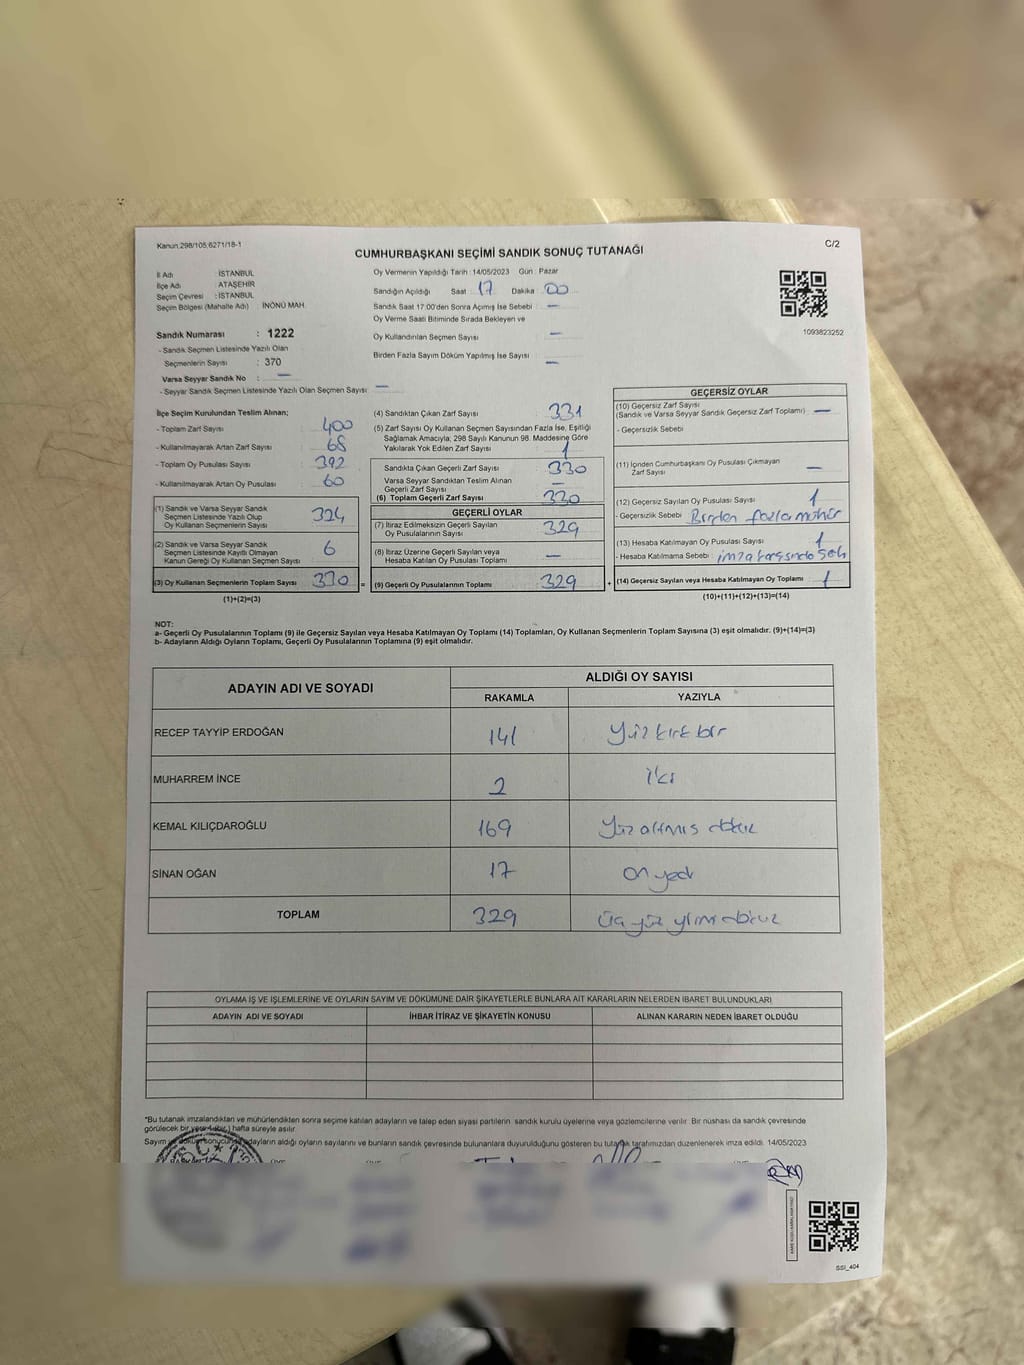 Kanun:298/105;6271/18-1
C/2
CUMHURBAŞKANI SEÇİMİ SANDIK SONUÇ TUTANAĞI
İl Adı : İSTANBUL
İlçe Adı : ATAŞEHİR
Seçim Çevresi : İSTANBUL
Seçim Bölgesi (Mahalle Adı) : İNÖNÜ MAH.
Sandık Numarası : 1222
- Sandık Seçmen Listesinde Yazılı Olan
Seçmenlerin Sayısı : 370
Varsa Seyyar Sandık No : —
- Seyyar Sandık Seçmen Listesinde Yazılı Olan Seçmen Sayısı: —
Oy Vermenin Yapıldığı Tarih : 14/05/2023 Gün : Pazar
Sandığın Açıldığı Saat : 17 Dakika : 00
Sandık Saat 17:00'den Sonra Açımış İse Sebebi : —
Oy Verme Saati Bitiminde Sırada Bekleyen ve
Oy Kullandırılan Seçmen Sayısı : —
Birden Fazla Sayım Döküm Yapılmış İse Sayısı : —
1093823252
İlçe Seçim Kurulundan Teslim Alınan;
- Toplam Zarf Sayısı : 400
- Kullanılmayarak Artan Zarf Sayısı : 68
- Toplam Oy Pusulası Sayısı : 392
- Kullanılmayarak Artan Oy Pusulası : 60
(1) Sandık ve Varsa Seyyar Sandık
Seçmen Listesinde Yazılı Olup
Oy Kullanan Seçmenlerin Sayısı : 324
(2) Sandık ve Varsa Seyyar Sandık
Seçmen Listesinde Kayıtlı Olmayan
Kanun Gereği Oy Kullanan Seçmen Sayısı : 6
(3) Oy Kullanan Seçmenlerin Toplam Sayısı : 330 =
(1)+(2)=(3)
(4) Sandıktan Çıkan Zarf Sayısı : 331
(5) Zarf Sayısı Oy Kullanan Seçmen Sayısından Fazla İse, Eşitliği
Sağlamak Amacıyla; 298 Sayılı Kanunun 98. Maddesine Göre
Yakılarak Yok Edilen Zarf Sayısı : 1
Sandıkta Çıkan Geçerli Zarf Sayısı : 330
Varsa Seyyar Sandıktan Teslim Alınan
Geçerli Zarf Sayısı : —
(6) Toplam Geçerli Zarf Sayısı : 330
GEÇERLİ OYLAR
(7) İtiraz Edilmeksizin Geçerli Sayılan
Oy Pusulalarının Sayısı : 329
(8) İtiraz Üzerine Geçerli Sayılan veya
Hesaba Katılan Oy Pusulası Toplamı : —
(9) Geçerli Oy Pusulalarının Toplamı : 329 +
GEÇERSİZ OYLAR
(10) Geçersiz Zarf Sayısı :
(Sandık ve Varsa Seyyar Sandık Geçersiz Zarf Toplamı) : —
- Geçersizlik Sebebi :
(11) İçinden Cumhurbaşkanı Oy Pusulası Çıkmayan
Zarf Sayısı : —
(12) Geçersiz Sayılan Oy Pusulası Sayısı : 1
- Geçersizlik Sebebi : Birden fazla mühür
(13) Hesaba Katılmayan Oy Pusulası Sayısı : 1
- Hesaba Katılmama Sebebi :
(14) Geçersiz Sayılan veya Hesaba Katılmayan Oy Toplamı : 1
(10)+(11)+(12)+(13)=(14)
NOT:
a- Geçerli Oy Pusulalarının Toplamı (9) ile Geçersiz Sayılan veya Hesaba Katılmayan Oy Toplamı (14) Toplamları, Oy Kullanan Seçmenlerin Toplam Sayısına (3) eşit olmalıdır. (9)+(14)=(3)
b- Adayların Aldığı Oyların Toplamı, Geçerli Oy Pusulalarının Toplamına (9) eşit olmalıdır.
ADAYIN ADI VE SOYADI ALDIĞI OY SAYISI
RAKAMLA YAZIYLA
RECEP TAYYİP ERDOĞAN 141 Yüz kırk bir
MUHARREM İNCE 2 iki
KEMAL KILIÇDAROĞLU 169 Yüz altmış dokuz
SİNAN OĞAN 17 on yedi
TOPLAM 329 üç yüz yirmi dokuz
OYLAMA İŞ VE İŞLEMLERİNE VE OYLARIN SAYIM VE DÖKÜMÜNE DAİR ŞİKAYETLERLE BUNLARA AİT KARARLARIN NELERDEN İBARET BULUNDUKLARI
ADAYIN ADI VE SOYADI İHBAR İTİRAZ VE ŞİKAYETİN KONUSU ALINAN KARARIN NEDEN İBARET OLDUĞU
*Bu tutanak imzalandıktan ve mühürlendikten sonra seçime katılan adayların ve talep eden siyasi partilerin sandık kurulu üyelerine veya gözlemcilerine verilir. Bir nüshası da sandık çevresinde
görülecek bir yere (bir) hafta süreyle asılır.
Sayım ve döküm sonucunda adayların aldığı oyların sayılarını ve bunların sandık çevresinde bulunanlara duyurulduğunu gösteren bu tutanak tarafımızdan düzenlenerek imza edildi. 14/05/2023
SSİ_404